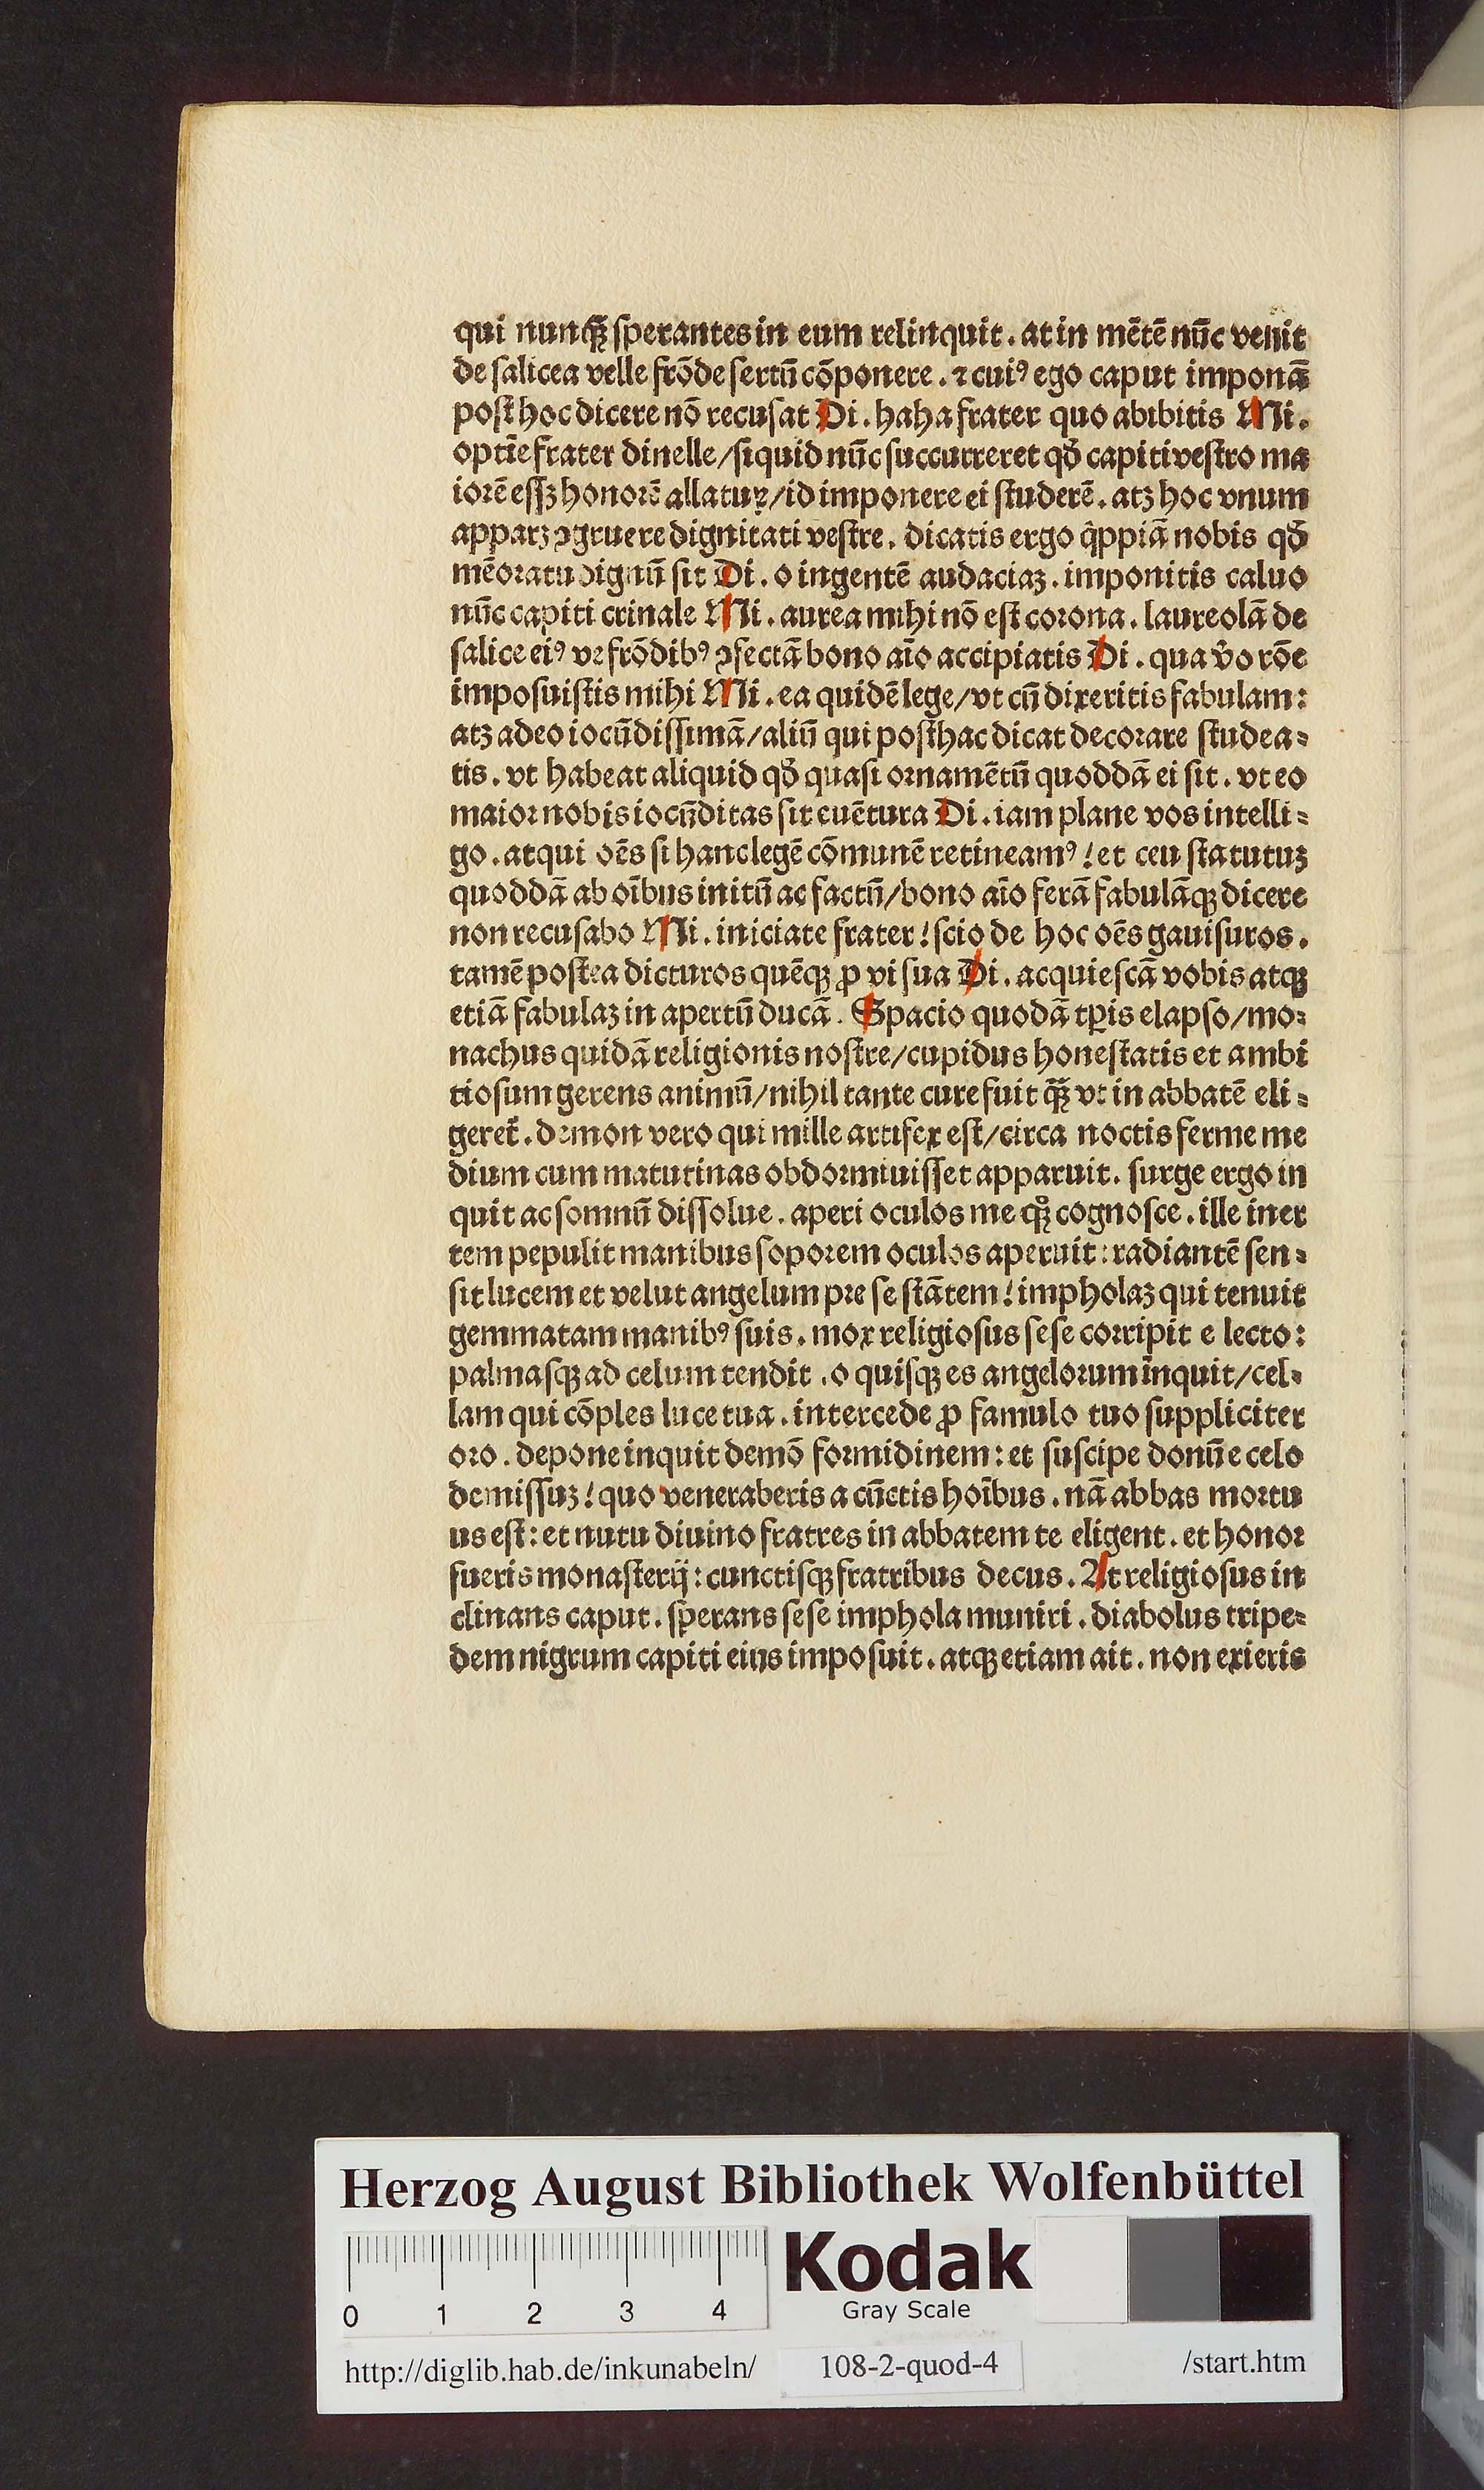 qui nunqꝫ̃ sperantes in eum relinquit. at in mētē nūc venit
de salicea velle frōde sertū cōponere. ⁊ cuiꝰ ego caput imponā
post hoc dicere nō recusat Di. haha frater quo abibitis Mi.
optīe frater dinelle/siquid nūc succurreret qd̄ capiti vestro ma
iorē essꝫ honorē allaturꝫ/id imponere ei studerē. atꝫ hoc vnum
apparꝫ ꝯgruere dignitati vestre. dicatis ergo q̇ppiā nobis qd̄
mēoratu dignū sit Di. o ingentē audaciaꝫ. imponitis caluo
nūc capiti crinale Mi. aurea mihi nō est corona. laureolā de
salice eiꝰ ve frōdibꝰ ꝯfectā bono aīo accipiatis Di. qua v̄o rōe
imposuistis mihi Mi. ea quidē lege/vt cū dixeritis fabulam:
atꝫ adeo iocūdissimā/aliū qui posthac dicat decorare studea⸗
tis. vt habeat aliquid qd̄ quasi ornamētū quoddā ei sit. vt eo
maior nobis iocūditas sit euētura Di. iam plane vos intelli⸗
go. atqui oēs si hanc legē cōmunē retineamꝰ! et ceu statutuꝫ
quoddā ab oībus initū ac factū/bono aīo ferā fabulāqꝫ dicere
non recusabo Mi. iniciate frater! scio de hoc oēs gauisuros.
tamē postea dicturos quēqꝫ ꝓ vi sua Di. acquiescā vobis atqꝫ
etiā fabulaꝫ in apertū ducā. Spacio quodā tꝑis elapso/mo⸗
nachus quidā religionis nostre/cupidus honestatis et ambi
tiosum gerens animū/nihil tante cure fuit qꝫ̃ vt in abbatē eli⸗
geret̄. demon vero qui mille artifex est/circa noctis ferme me
dium cum maturinas obdormiuisset apparuit. surge ergo in
quit ac somnū dissolue. aperi oculos me qꝫ cognosce. ille iner
tem pepulit manibus soporem oculos aperuit: radiantē sen⸗
sit lucem et velut angelum pre se stātem! impholaꝫ qui tenuit
gemmatam manibꝰ suis. mox religiosus sese corripit e lecto:
palmasqꝫ ad celum tendit. o quisqꝫ es angelorum īnquit/cel⸗
lam qui cōples luce tua. intercede ꝓ famulo tuo suppliciter
oro. depone inquit demō formidinem: et suscipe donū e celo
demissuꝫ! quo veneraberis a cūctis hoībus. nā abbas mortu
us est: et nutu diuino fratres in abbatem te eligent. et honor
fueris monasterij: cunctisqꝫ fratribus decus. At religiosus in
clinans caput. sperans sese imphola muniri. diabolus tripe⸗
dem nigrum capiti eius imposuit. atqꝫ etiam ait. non exieris
Herzog August Bibliothek Wolfenbüttel
0 1 2 3 4
Kodak
Gray Scale
http://diglib.hab.de/inkunabeln/ 108-2-quod-4 /start.htm